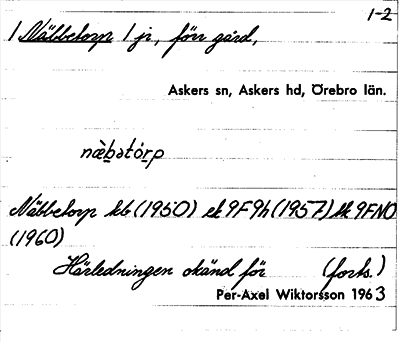 1-2
1 Näbbetorp 1 jr, förr gård,
Askers sn, Askers hd, Örebro län.
næ̀b̠ətór̠p
Näbbetorp kb (1950) ek 9F9h (1957) tk 9FNO
(1960)
Härledningen okänd för (forts.)
Per-Axel Wiktorsson 1963